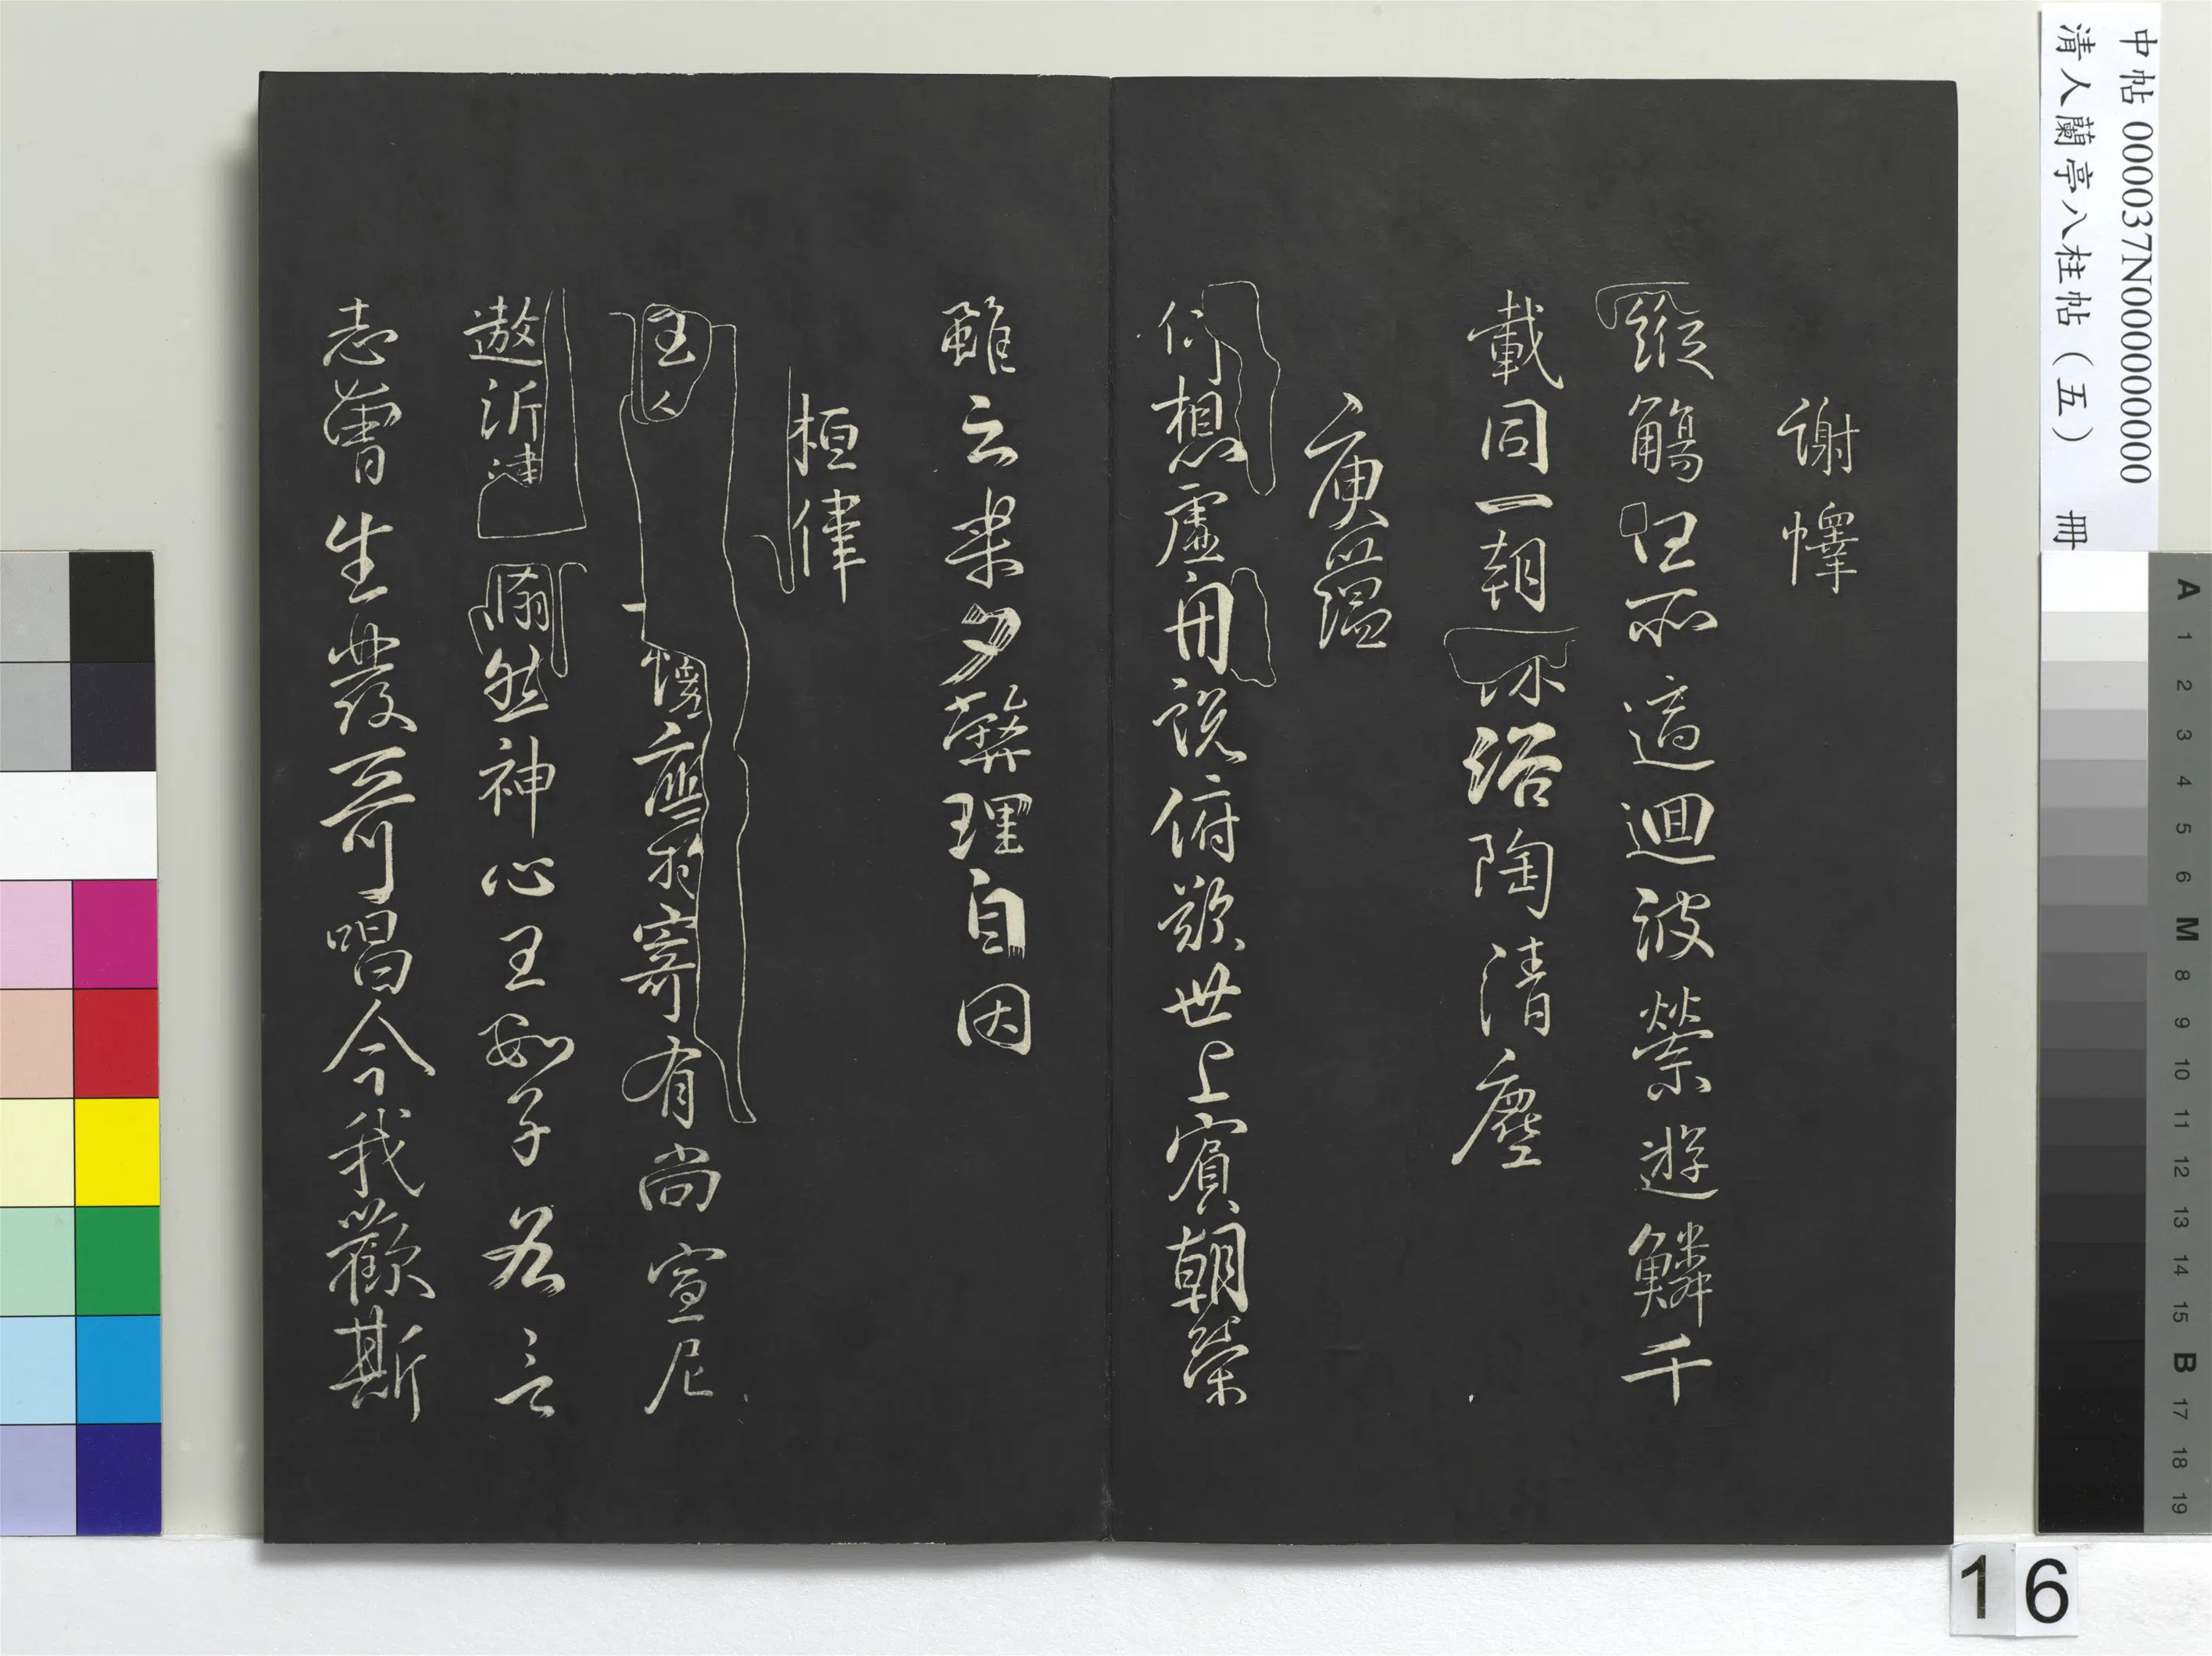 謝懌
縱觴任所適迴波縈遊鱗千
載同一朝沐俗陶清塵
庾蘊
仰想虛舟說俯歎世上賓朝榮
雖云樂夕斃理自因
桓偉
主人懷應物寄有尚宣尼
遨沂津翛然神心王數子各言
志曾生發奇唱今我歡斯
中帖 000037N000000000
清人蘭亭八柱帖（五） 冊
16
A 1 2 3 4 5 6 M 8 9 10 11 12 13 14 15 B 17 18 19